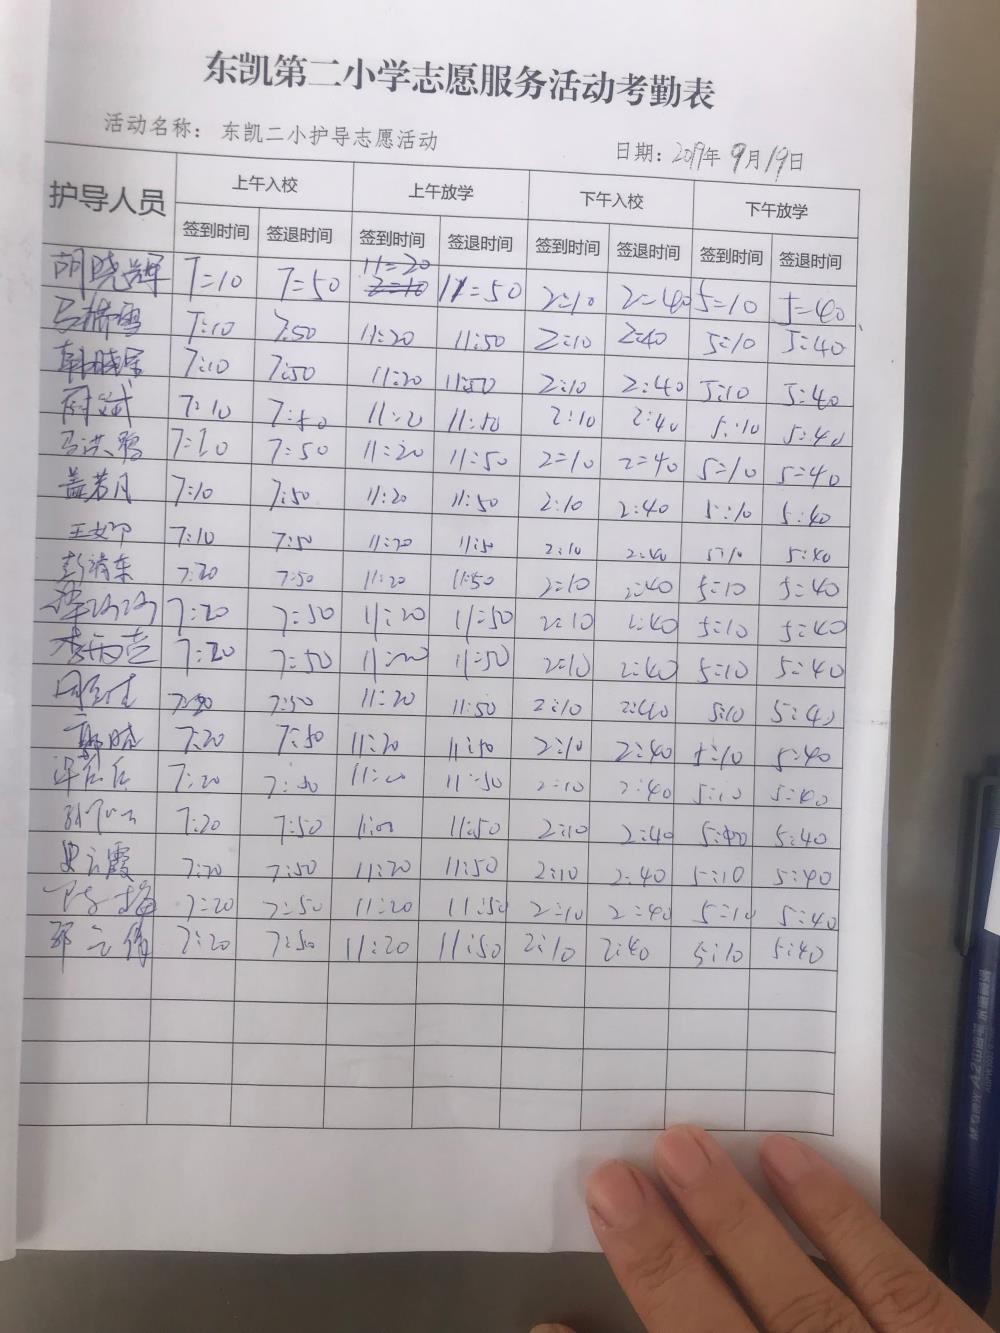 东凯第二小学志愿服务活动考勤表
活动名称： 东凯二小护导志愿活动
日期：2019年 9月19日
护导人员 上午入校 上午放学 下午入校 下午放学
签到时间 签退时间 签到时间 签退时间 签到时间 签退时间 签到时间 签退时间
胡晓辉 7=10 7=50 11=20 11=50 2=10 2=40 5=10 5=40
7:10 7:50 11:20 11:50 2:10 2:40 5:10 5:40
韩晓军 7:10 7:50 11:20 11:50 2:10 2:40 5:10 5:40
7:10 7:50 11:20 11:50 2:10 2:40 5:10 5:40
马洪鸽 7:10 7:50 11:20 11:50 2=10 2=40 5=10 5=40
盖若月 7:10 7:50 11:20 11:50 2:10 2:40 5:10 5:40
7:10 7:50 11:20 11:50 2:10 2:40 5:10 5:40
彭靖东 7:20 7:50 11:20 11:50 2:10 2:40 5:10 5:40
7:20 7:50 11:20 11:50 2:10 2:40 5:10 5:40
7:20 7:50 11:20 11:50 2:10 2:40 5:10 5:40
7:20 7:50 11:20 11:50 2:10 2:40 5:10 5:40
郭晓 7:20 7:50 11:20 11:50 2:10 2:40 5:10 5:40
7:20 7:50 11:20 11:50 2:10 2:40 5:10 5:40
7:20 7:50 11:50 2:10 2:40 5:40
史云霞 7:20 7:50 11:20 11:50 2:10 2:40 5:10 5:40
陈梅 7:20 7:50 11:20 11:50 2:10 2:40 5:10 5:40
邵云倩 7:20 7:50 11:20 11:50 2:10 2:40 5:10 5:40